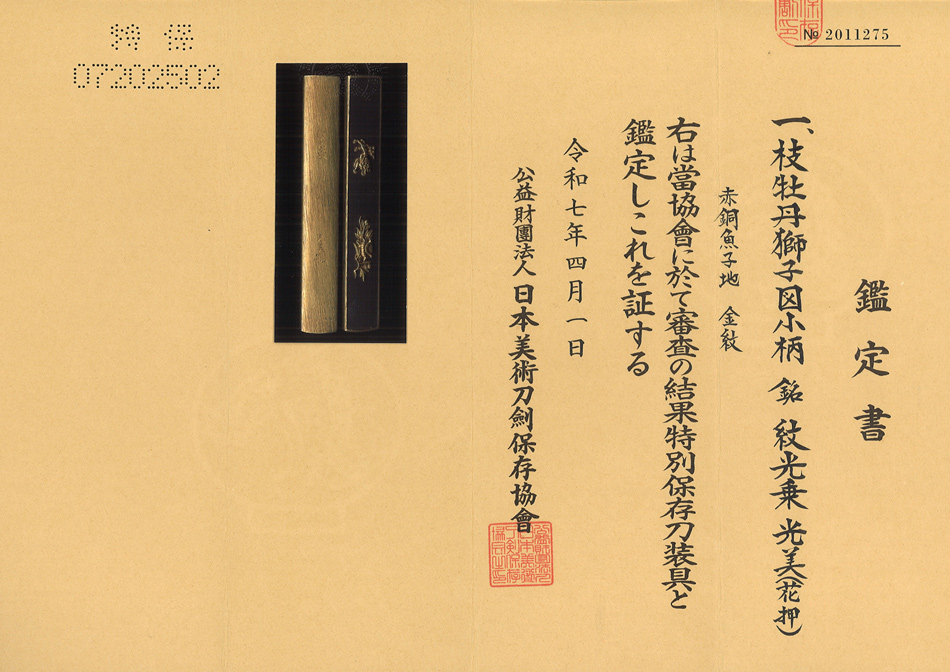 特 保
07202502
№ 2011275
鑑定書
一、枝牡丹獅子図小柄 銘 紋光乗 光美(花押)
赤銅魚子地 金紋
右は當協會に於て審査の結果特別保存刀装具と
鑑定しこれを証する
令和七年四月一日
公益財團法人日本美術刀劍保存協會